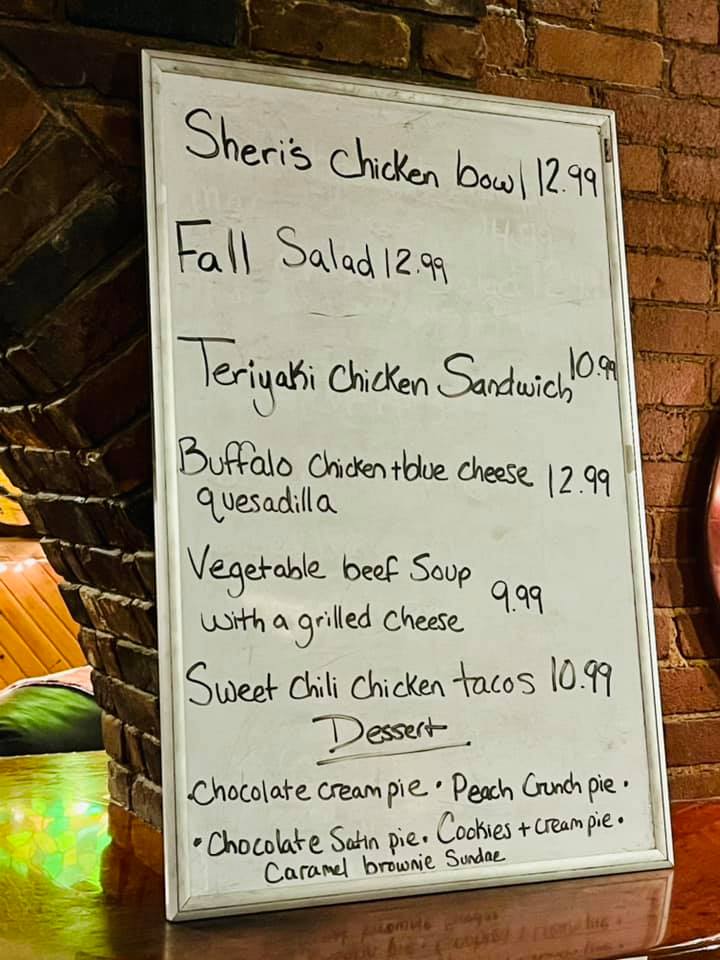 Sheri's Chicken bowl 12.99
Fall Salad 12.99
Teriyaki Chicken Sandwich 10.99
Buffalo Chicken + blue cheese 12.99
quesadilla
Vegetable beef Soup
with a grilled cheese 9.99
Sweet Chili Chicken tacos 10.99
Dessert
• Chocolate cream pie • Peach Crunch pie •
• Chocolate Satin pie • Cookies + cream pie •
Caramel brownie Sundae